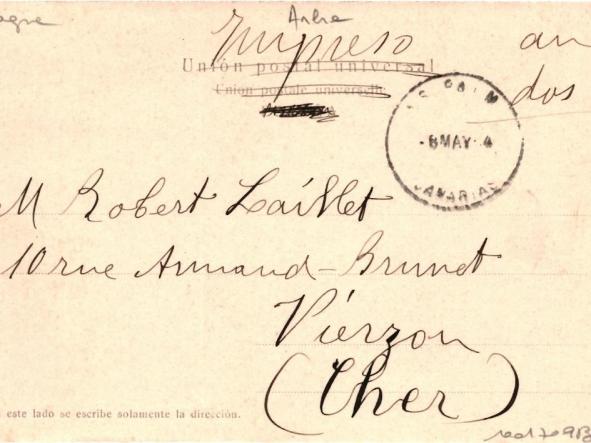 Arbre
Impreso an
Unión postal universal
Union postale universelle
dos
PALM
-8 MAY 4
CANARIAS
M Robert Laillet
10 rue Armand-Brunet
Vierzon
(Cher)
este lado se escribe solamente la dirección.